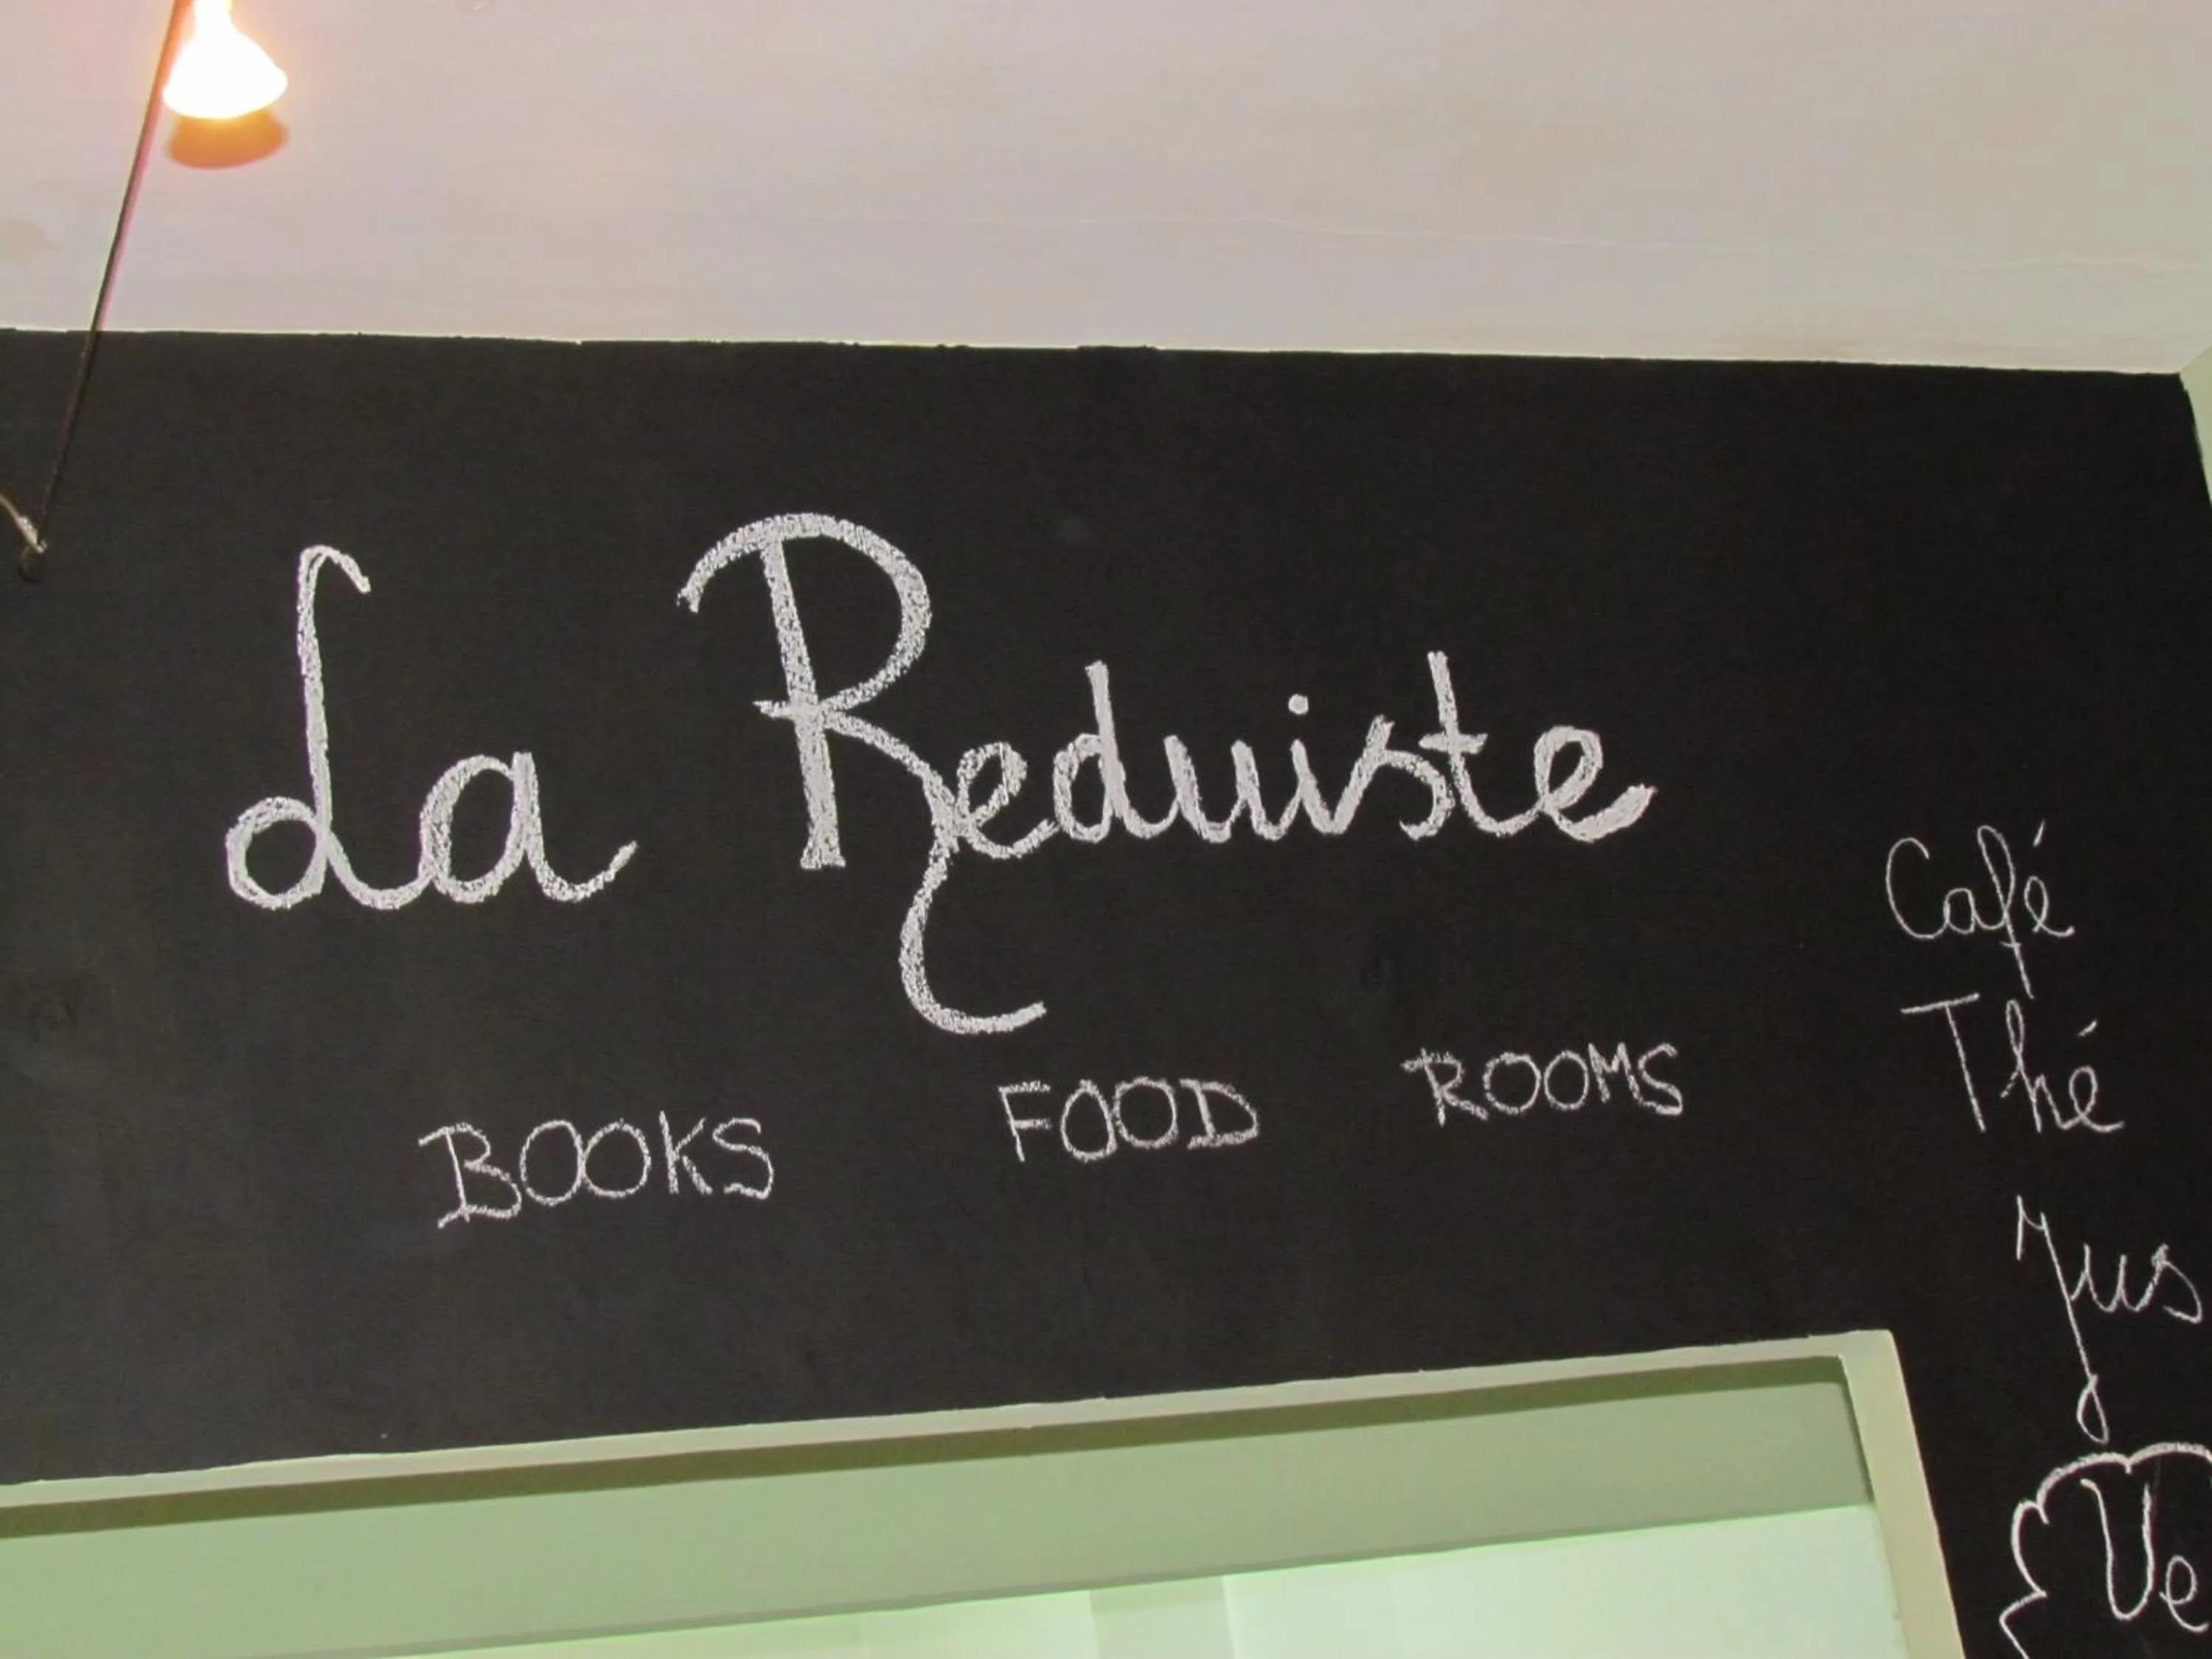 La Reduiste
BOOKS FOOD ROOMS
Café
Thé
Jus
Ve